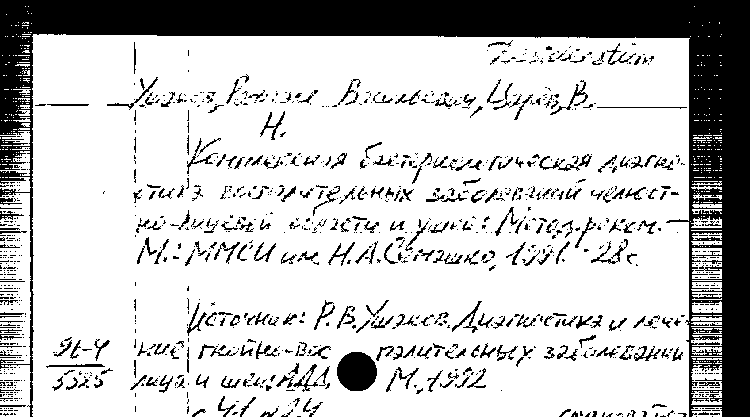 Desideratum
Ушаков, Рафаэль Васильевич, Царёв, В.
Н.
Комплексная бактериологическая диагно-
стика воспалительных заболеваний челюст-
но-лицевой области и ушно: Метод. реком. —
М.: ММСИ им. Н.А. Семашко, 1991. - 28 с.
Источник: Р.В. Ушаков. Диагностика и лече-
ние гнойно-вос палительных заболеваний
91-4
5525
лица и шеи: АДД М., 1992
с 41 №24